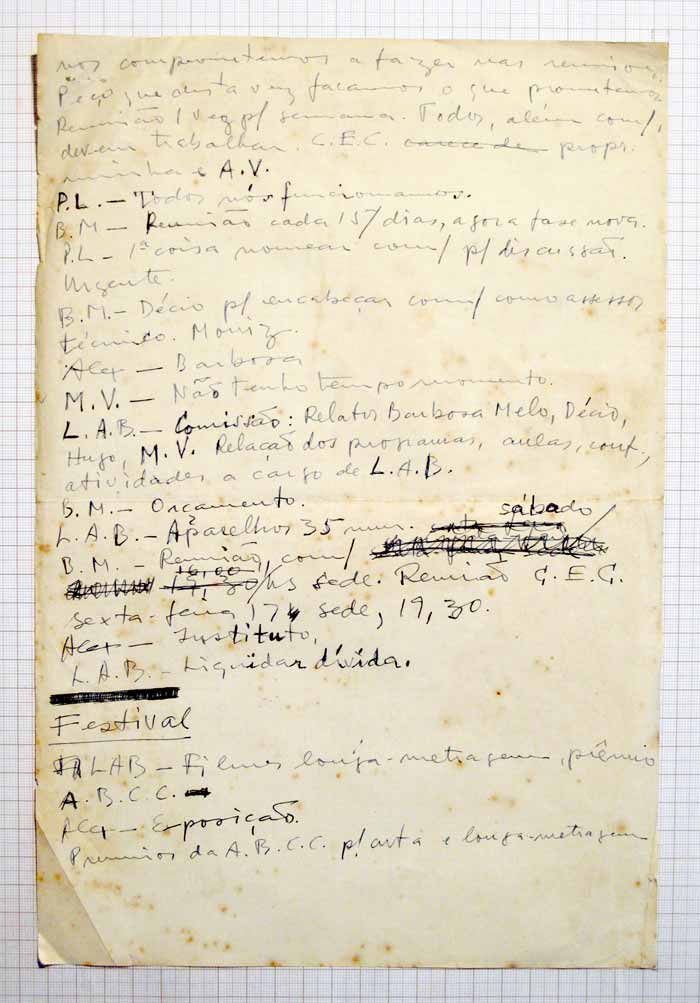 nos comprometemos a fazer nas reuniões.
Peço que desta vez façamos o que prometemos
Reunião 1 vez p/ semana. Todos, além com/,
devem trabalhar. C.E.C. carece de propr.
minha e A.V.
P.L. — Todos nós funcionamos.
B.M — Reunião cada 15/ dias, agora fase nova.
P.L — 1ª coisa nomear com/ p/ discussão.
Urgente.
B.M. — Décio p/ encabeçar com/ como assessor
técnico. Moniz.
Alex — Barbosa
M.V. — Não tenho tempo momento.
L.A.B. — Comissão: Relator Barbosa Melo, Décio,
Hugo, M.V. Relação dos programas, aulas, conf.,
atividades a cargo de L.A.B.
B.M. — Orçamento.
L.A.B. — Aparelhos 35 mm. sábado
B.M. — Reunião com/
16,00
17,30/hs sede. Reunião C.E.C.
sexta-feira, 17, sede, 19,30.
Alex — Instituto,
L.A.B. — Liquidar dívida.
Festival
LAB — Filmes longa-metragem, prêmio
A.B.C.C. —
Alex — Exposição.
Premios da A.B.C.C. p/ curta e longa-metragem